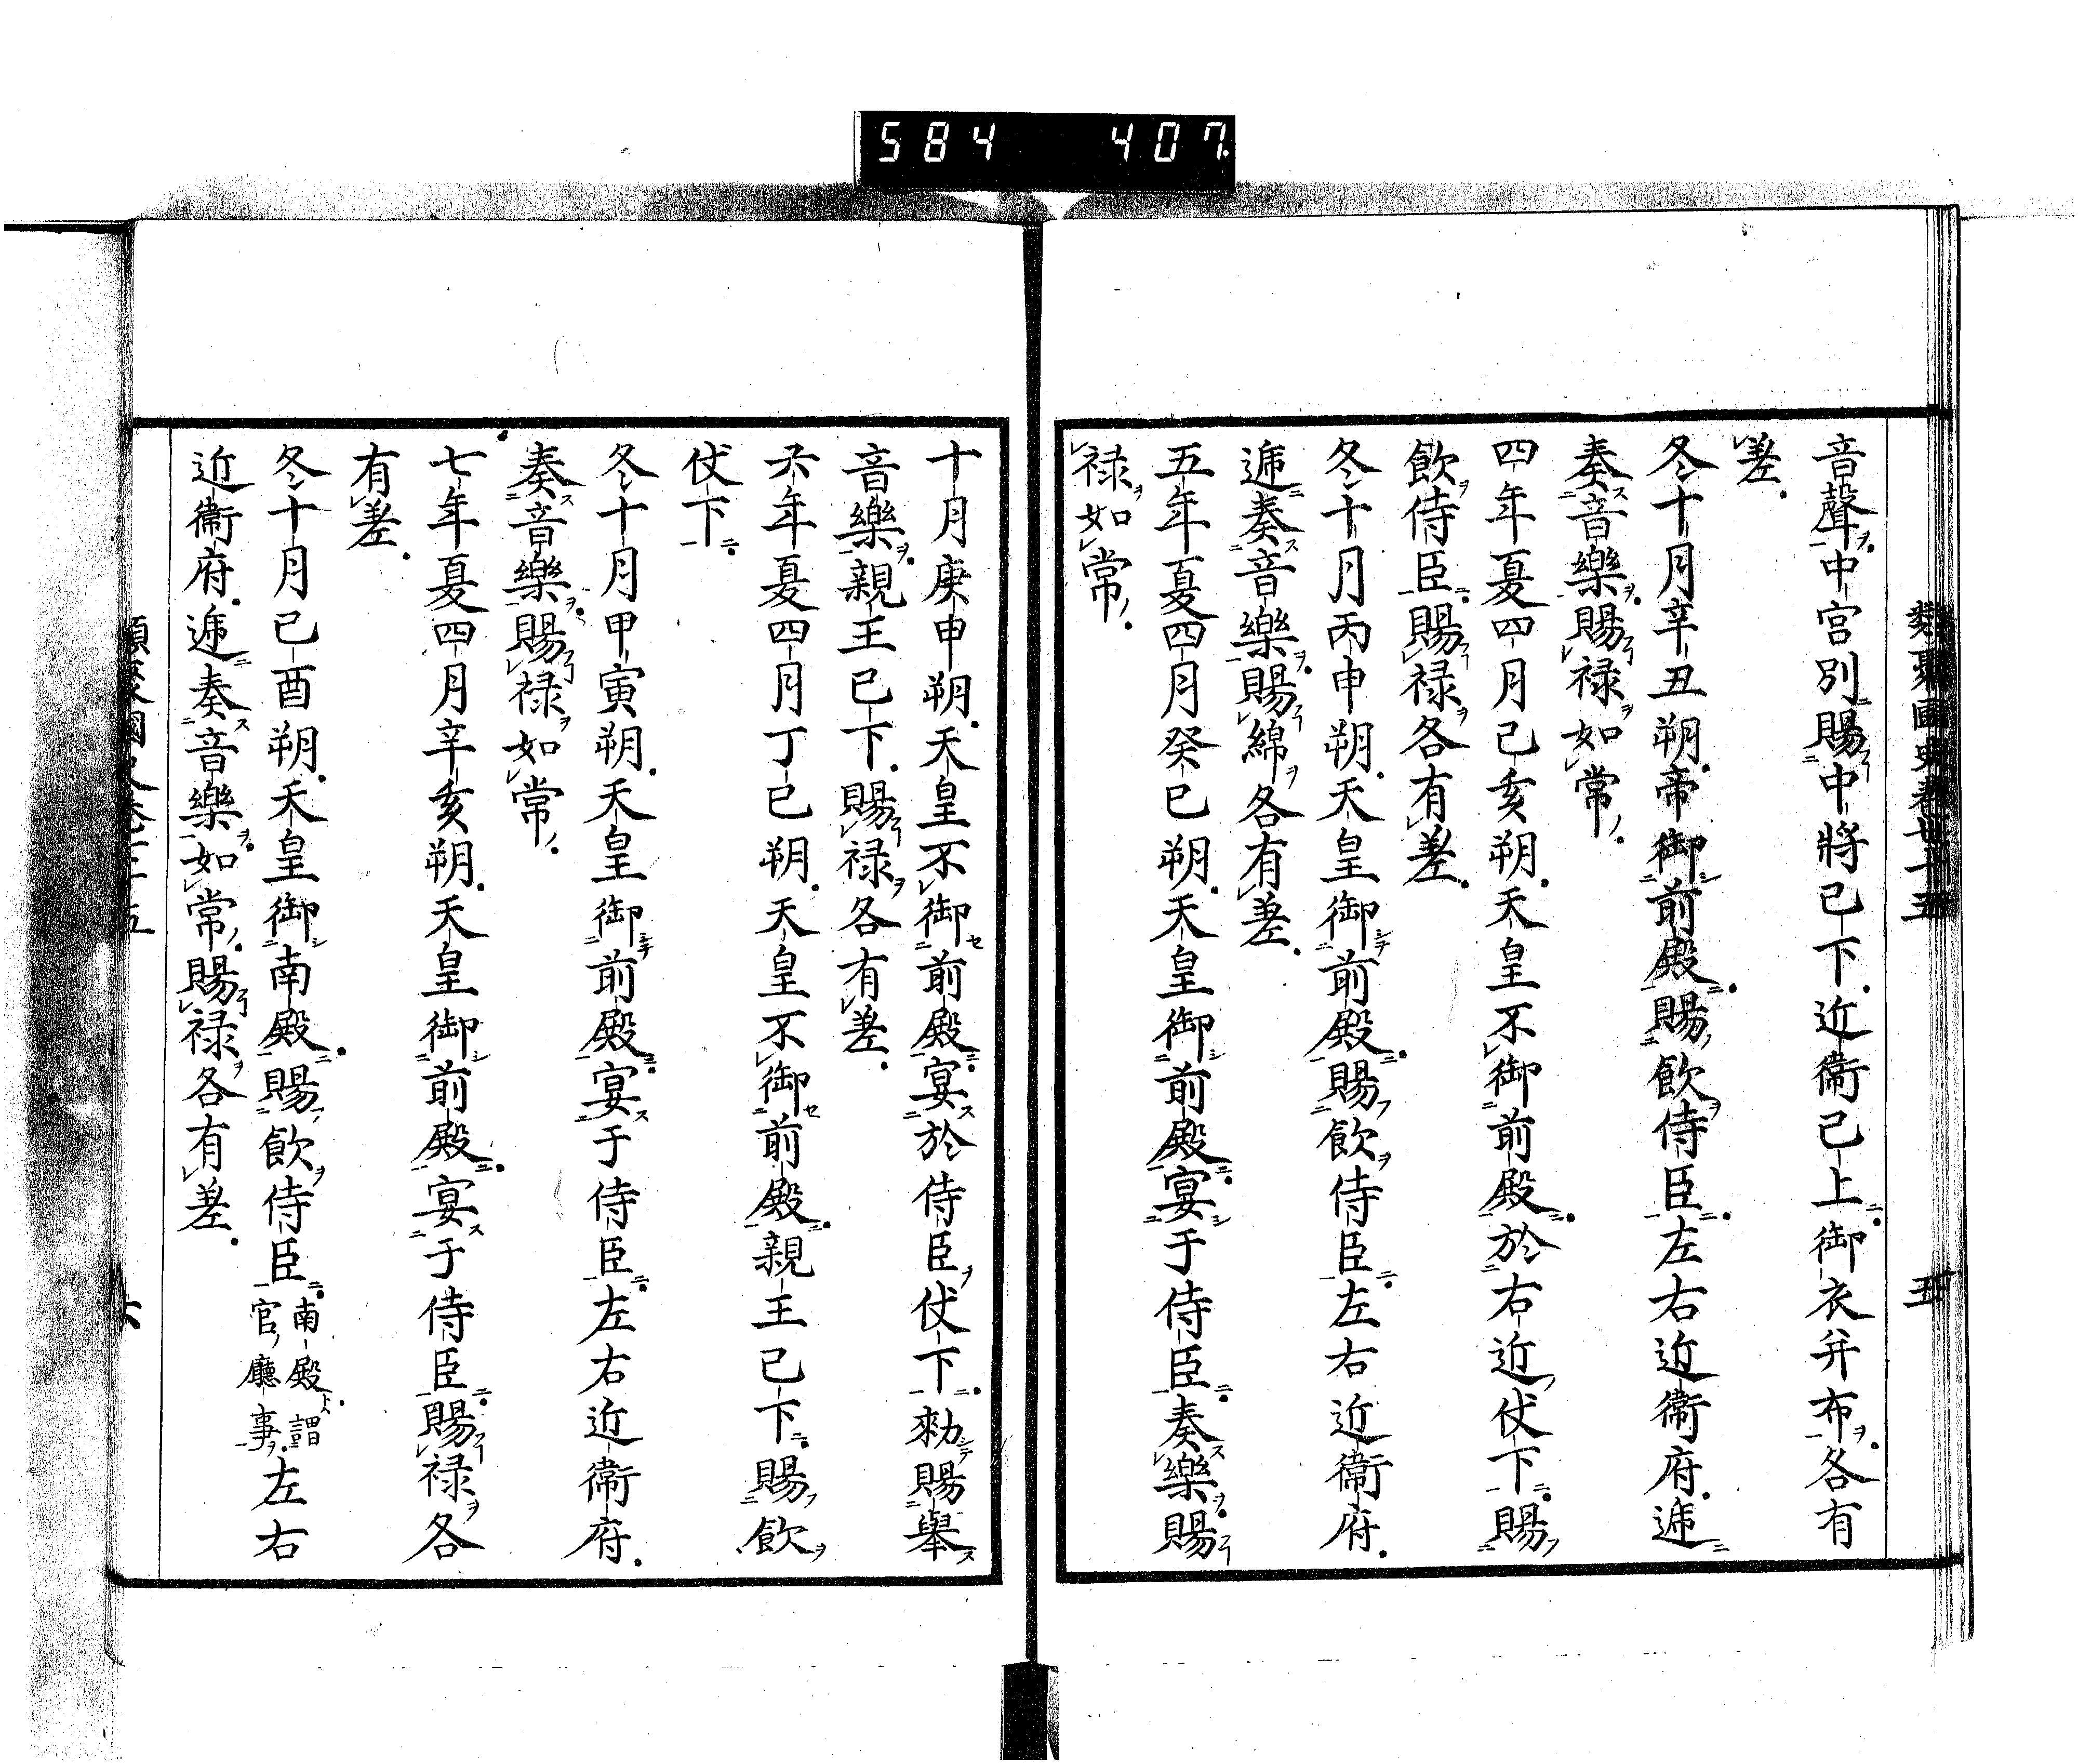 584 407
類聚國史卷廿十五 五
音聲中宮別賜中將已下近衞已上御衣并布各有
差
冬十月辛丑朔帝御前殿賜飮侍臣左右近衞府遞
奏音樂賜禄如常
四年夏四月己亥朔天皇不御前殿於右近仗下賜
飮侍臣賜禄各有差
冬十月丙申朔天皇御前殿賜飮侍臣左右近衞府
遞奏音樂賜綿各有差
五年夏四月癸巳朔天皇御前殿宴于侍臣奏樂賜
禄如常
十月庚申朔天皇不御前殿宴於侍臣仗下勑賜舉
音樂親王已下賜禄各有差
六年夏四月丁巳朔天皇不御前殿親王已下賜飮
仗下
冬十月甲寅朔天皇御前殿宴于侍臣左右近衞府
奏音樂賜禄如常
七年夏四月辛亥朔天皇御前殿宴于侍臣賜禄各
有差
冬十月己酉朔天皇御南殿賜飮侍臣南殿謂官廳事左右
近衞府遞奏音樂如常賜禄各有差